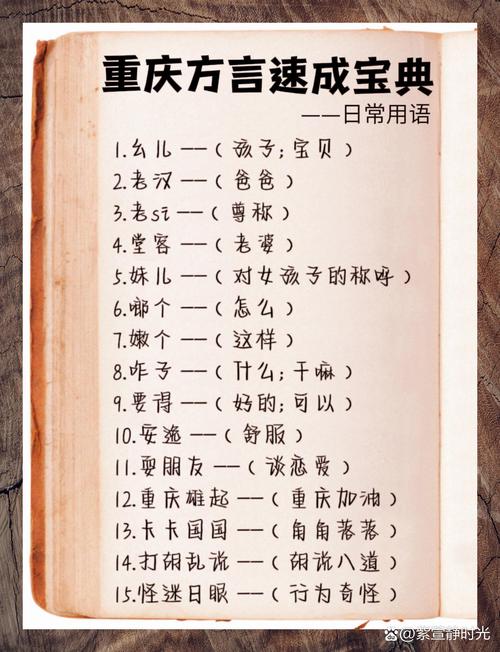 重庆方言速成宝典
——日常用语
1.幺儿——（孩子；宝贝）
2.老汉——（爸爸）
3.老si——（尊称）
4.堂客——（老婆）
5.妹儿——（对女孩子的称呼）
6.啷个——（怎么）
7.嫩个——（这样）
8.咋子——（什么；干嘛）
9.要得——（好的；可以）
10.安逸——（舒服）
11.耍朋友——（谈恋爱）
12.重庆雄起——（重庆加油）
13.卡卡国国——（角角落落）
14.打胡乱说——（胡说八道）
15.怪迷日眼——（行为奇怪）
@紫萱静时光